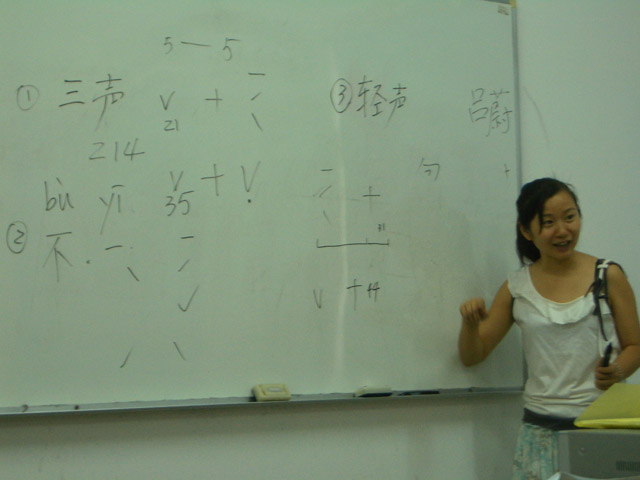 5 — 5
① 三声 ˇ + ˉ ˊ ˋ
21
214
ˇ + ˇ
35
② bù yī
不 · 一 ˋ ˉ ˊ ˇ
ˊ ˋ
③ 轻声
吕蔚
ˉ ˊ ˋ +
31
ˇ + 44